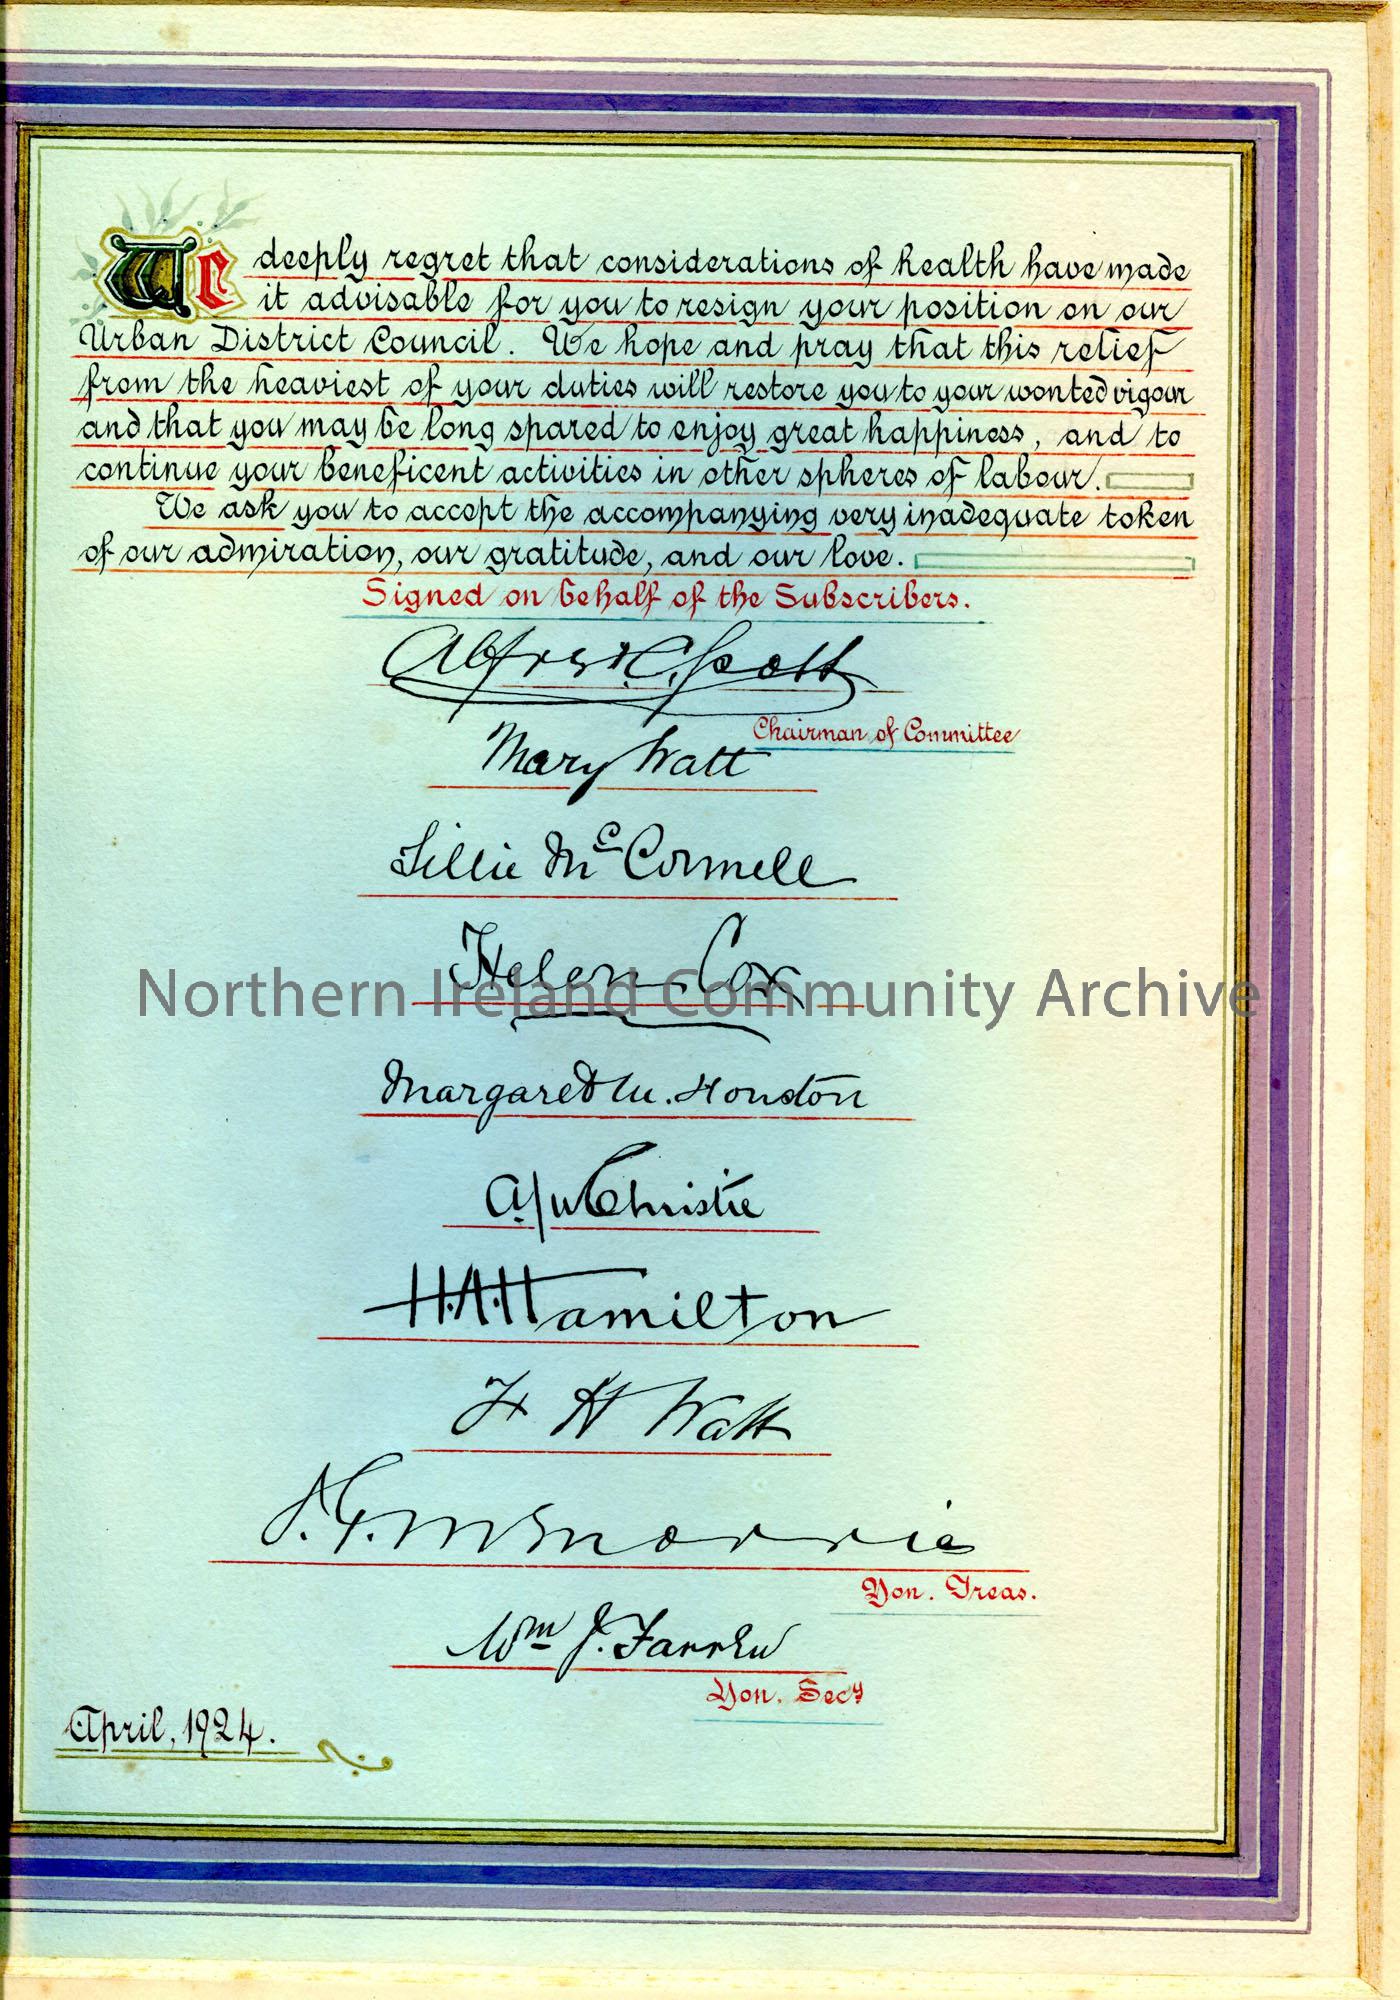 We deeply regret that considerations of health have made
it advisable for you to resign your position on our
Urban District Council. We hope and pray that this relief
from the heaviest of your duties will restore you to your wonted vigour
and that you may be long spared to enjoy great happiness, and to
continue your beneficent activities in other spheres of labour.
We ask you to accept the accompanying very inadequate token
of our admiration, our gratitude, and our love.
Signed on behalf of the Subscribers.
Alfred C. Scott
Chairman of Committee
Mary Watt
Lillie McConnell
Helen Cox
Northern Ireland Community Archive
Margaret M. Houston
Christie
H.A. Hamilton
H Watt
Hon. Treas.
Wm J. Farren
Hon. Secy
April, 1924.